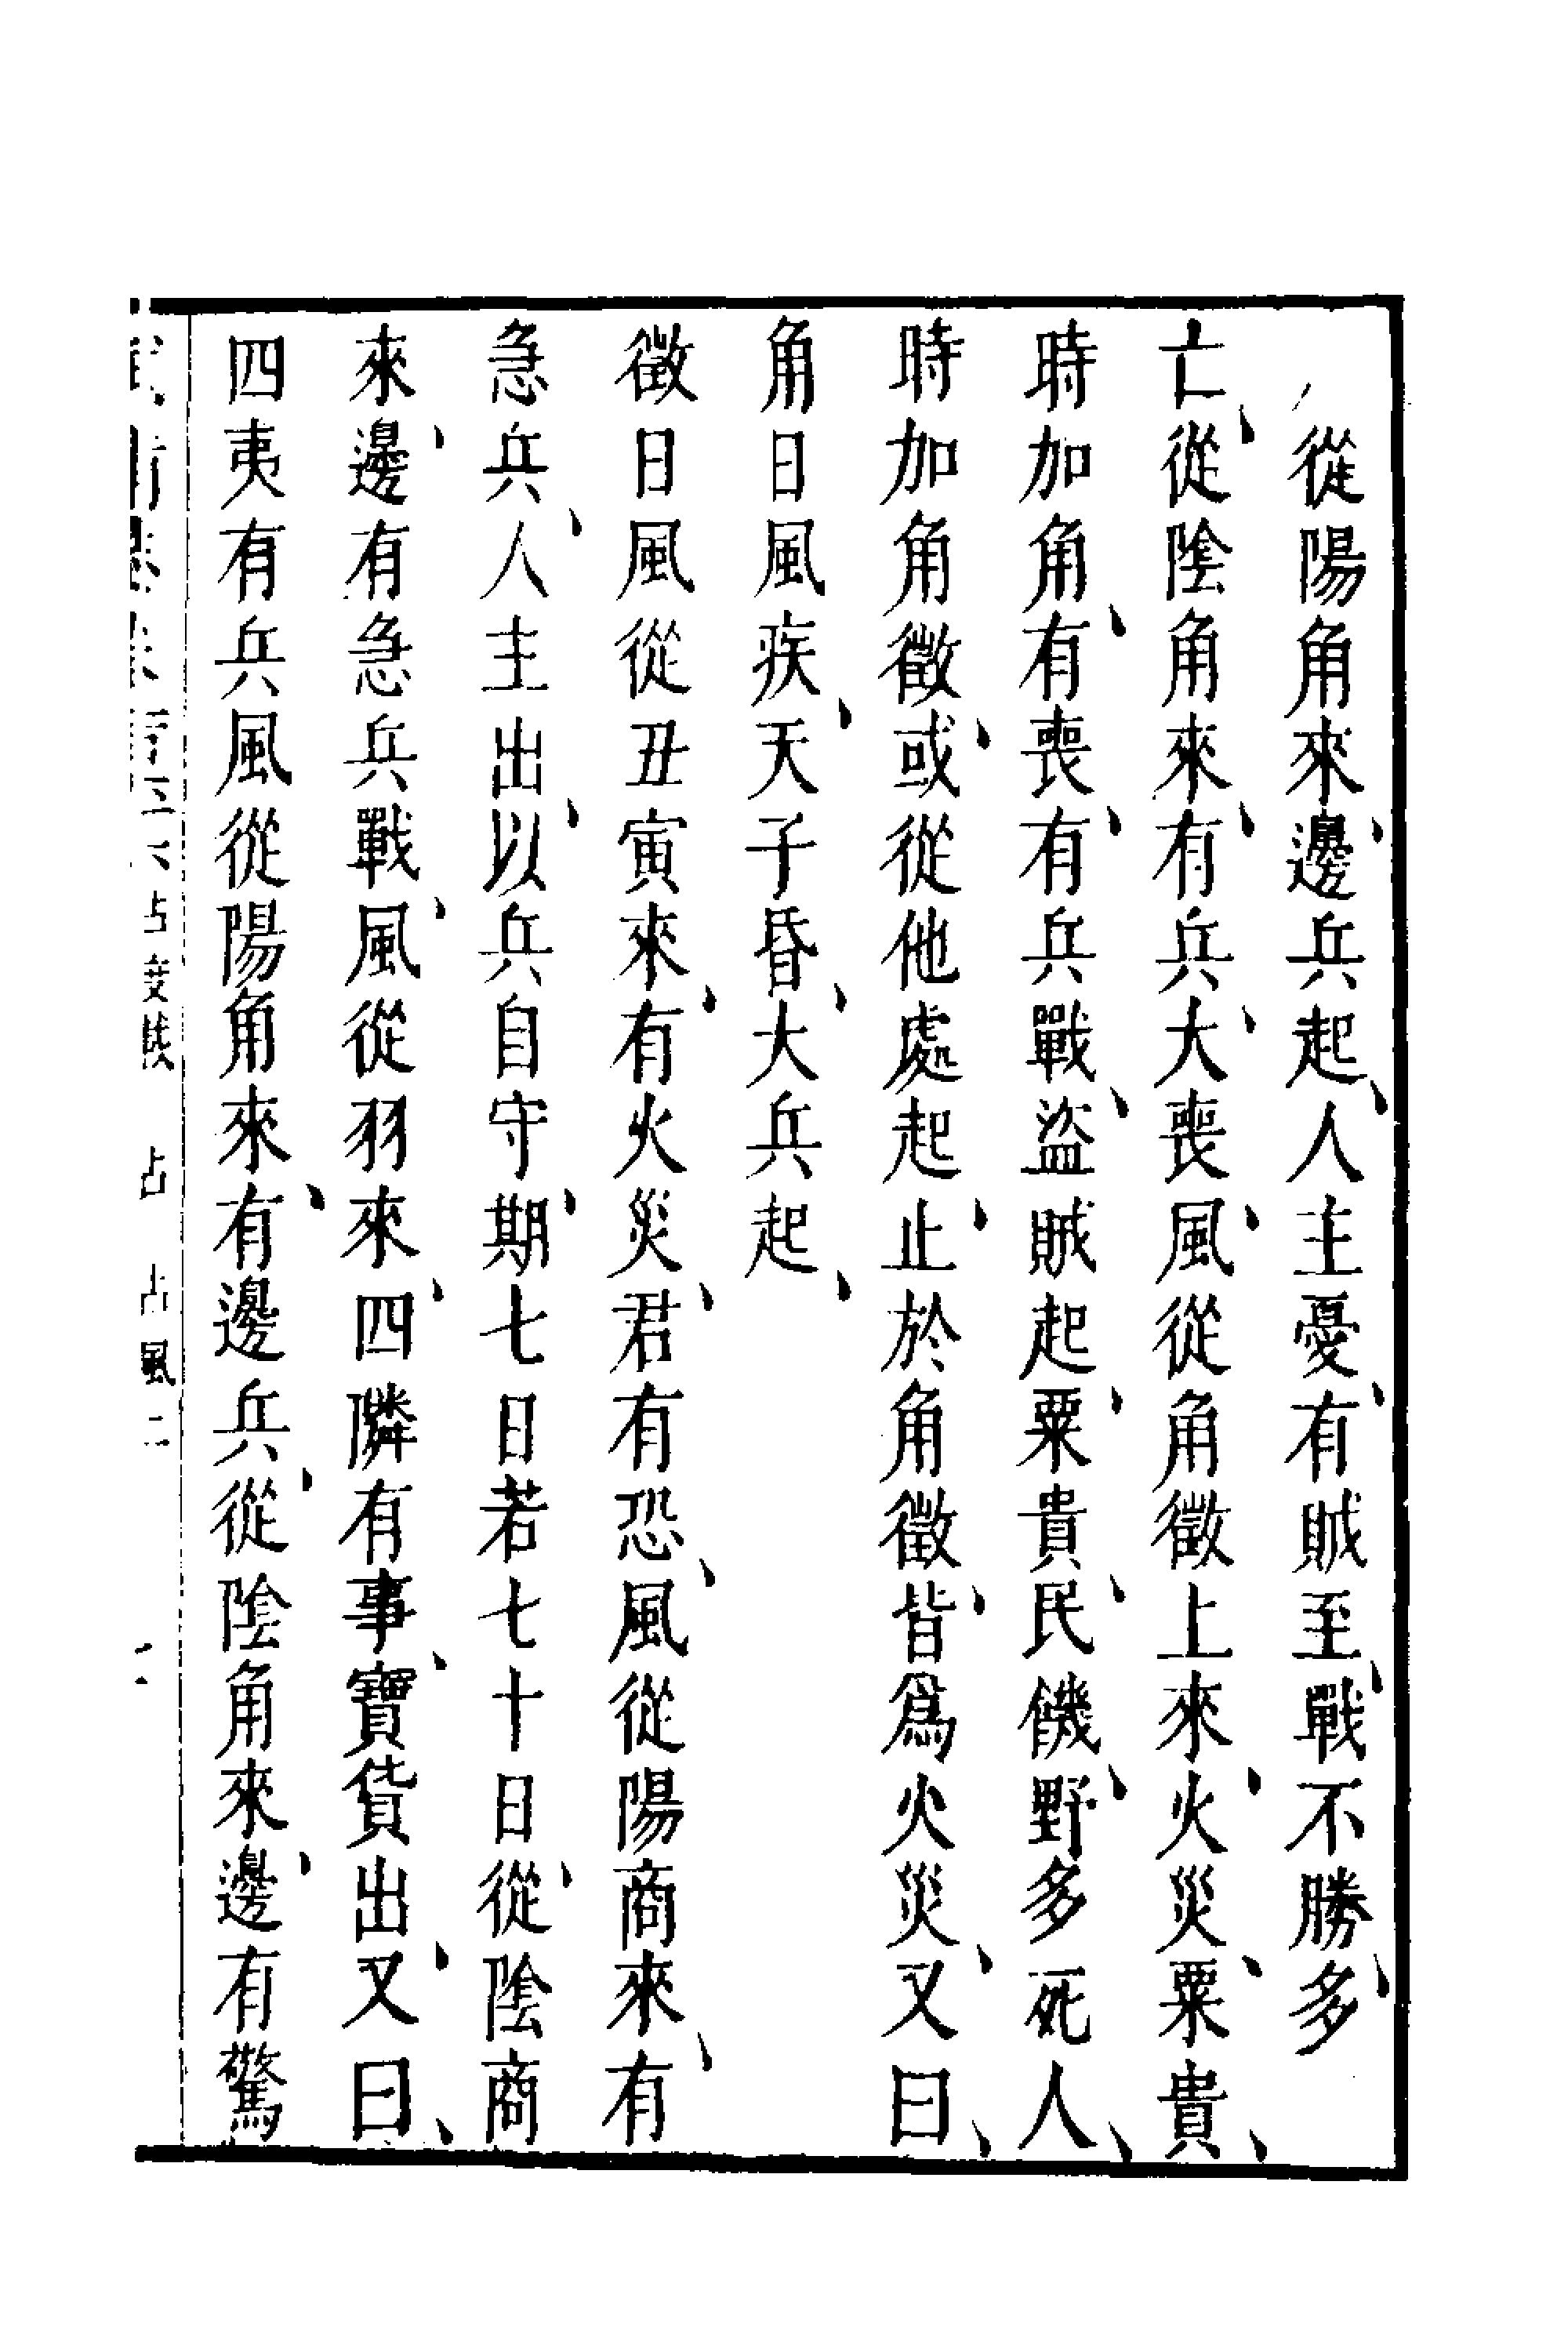 從陽角來、邊兵起、人主憂、有賊至、戰不勝、多
亡、從陰角來、有兵、大喪、風從角徵上來、火災、粟貴、
時加角、有喪、有兵戰、盜賊起、粟貴、民饑、野多死人、
時加角徵、或從他處起、止於角徵、皆爲火災、又曰、
角日風疾、天子昏、大兵起、
徵日風從丑寅來、有火災、君有恐、風從陽商來、有
急兵、人主出、以兵自守、期七日若七十日、從陰商
來、邊有急兵戰、風從羽來、四隣有事、寶貨出、又曰、
四夷有兵風從陽角來、有邊兵、從陰角來、邊有驚
占度載 占 占風二